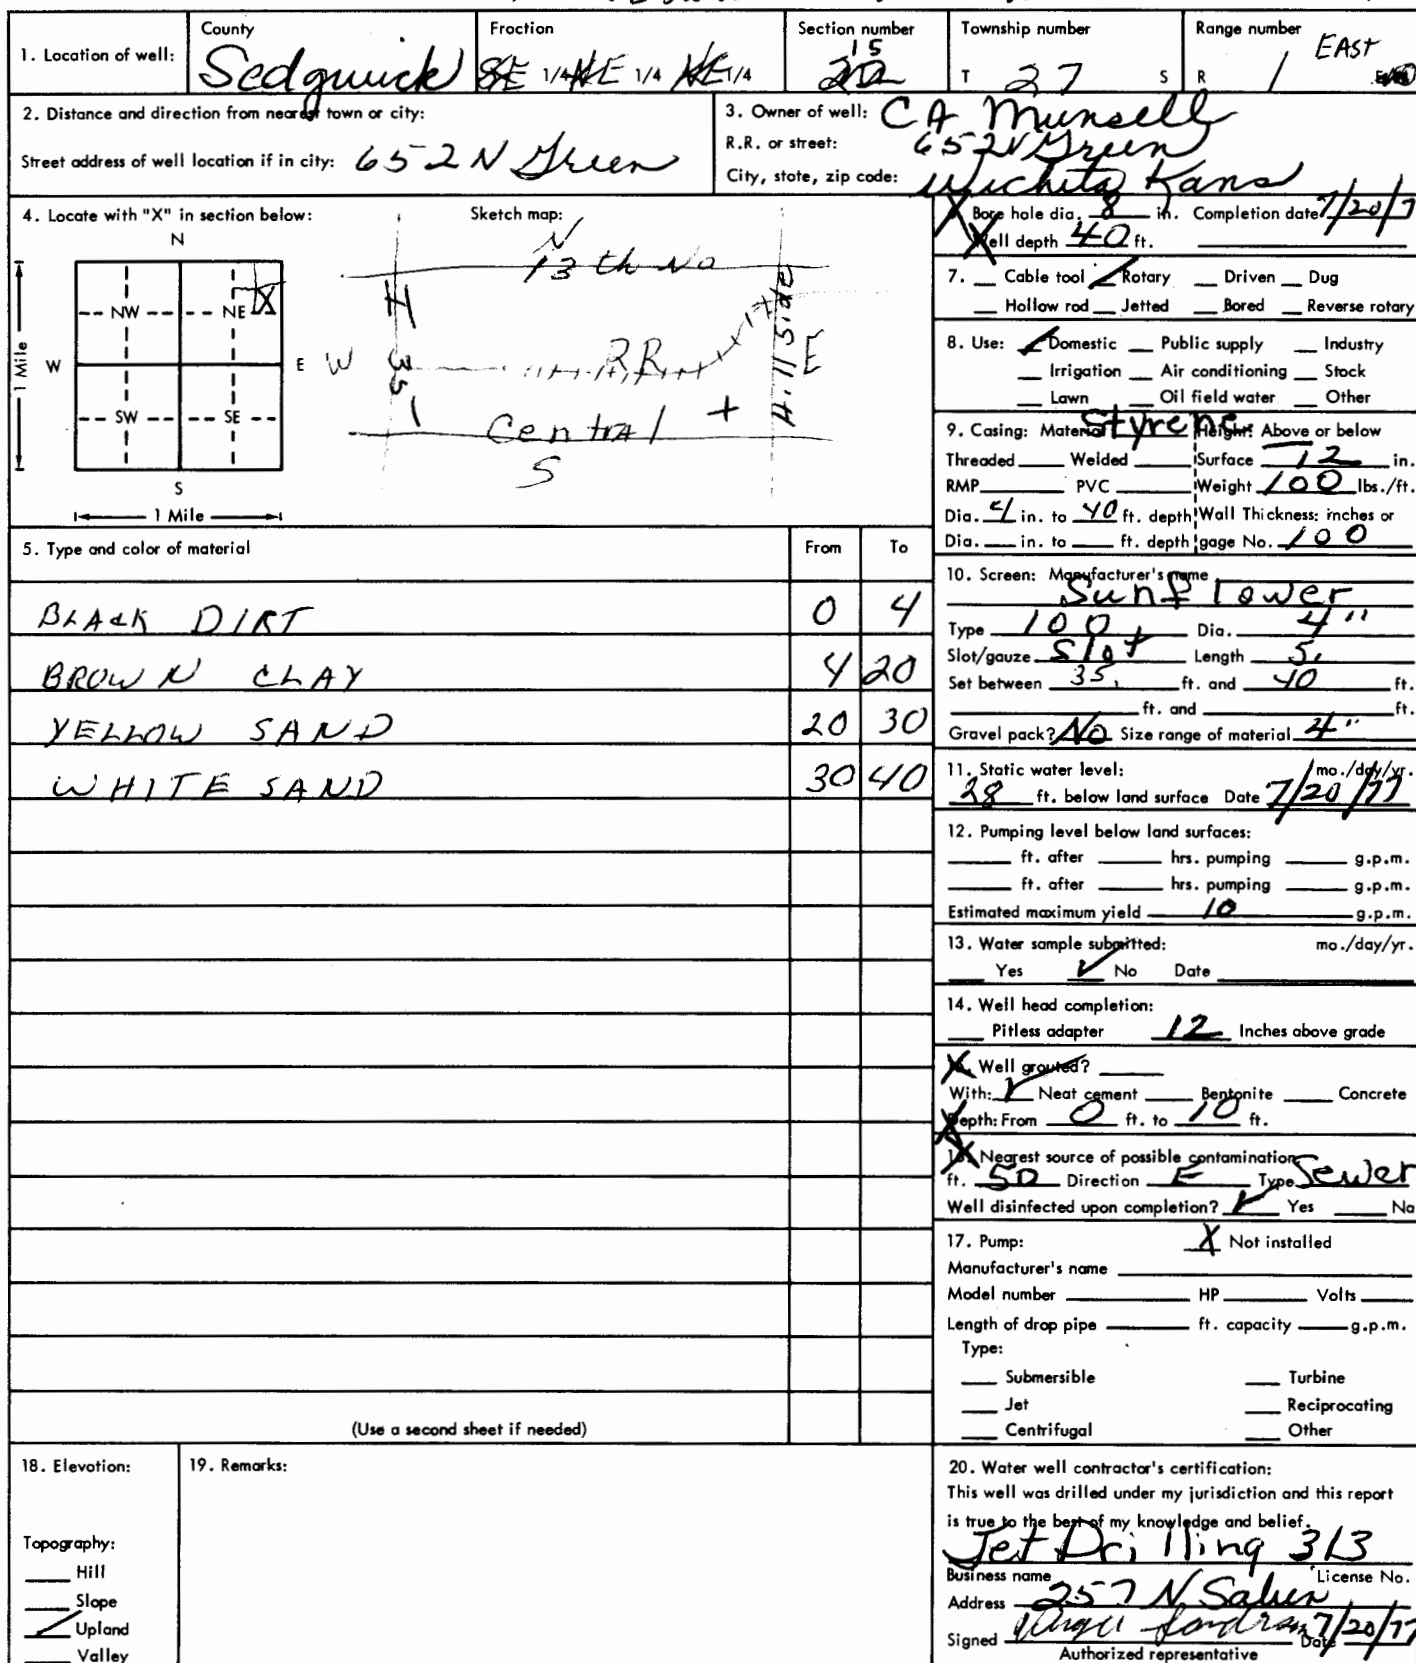 1. Location of well:
County
Sedgwick
Fraction
SE 1/4 NE 1/4 NE 1/4
Section number
15
22
Township number
T 27 S
Range number
R 1 EAST
2. Distance and direction from nearest town or city:
Street address of well location if in city: 652 N Green
3. Owner of well: CA Munsell
R.R. or street: 652 N Green
City, state, zip code: Wichita Kans
4. Locate with "X" in section below:
N
NW NE X
W E
SW SE
S
1 Mile
1 Mile
Sketch map:
N
13th No
W H 35 RR Hillside E
Central +
S
Bore hole dia. 8 in. Completion date 7/20/7
Well depth 40 ft.
7. Cable tool ✓ Rotary Driven Dug
Hollow rod Jetted Bored Reverse rotary
8. Use: ✓ Domestic Public supply Industry
Irrigation Air conditioning Stock
Lawn Oil field water Other
9. Casing: Material Styrene Height: Above or below
Threaded Welded Surface 12 in.
RMP PVC Weight 100 lbs./ft.
Dia. 4 in. to 40 ft. depth Wall Thickness: inches or
Dia. in. to ft. depth gage No. 100
5. Type and color of material From To
BLACK DIRT 0 4
BROWN CLAY 4 20
YELLOW SAND 20 30
WHITE SAND 30 40
(Use a second sheet if needed)
10. Screen: Manufacturer's name
Sunflower
Type 100 Dia. 4"
Slot/gauze Slot Length 5,
Set between 35, ft. and 40 ft.
ft. and ft.
Gravel pack? No Size range of material 4"
11. Static water level: mo./day/yr.
28 ft. below land surface Date 7/20/77
12. Pumping level below land surfaces:
ft. after hrs. pumping g.p.m.
ft. after hrs. pumping g.p.m.
Estimated maximum yield 10 g.p.m.
13. Water sample submitted: mo./day/yr.
Yes ✓ No Date
14. Well head completion:
Pitless adapter 12 Inches above grade
Well grouted?
With: ✓ Neat cement Bentonite Concrete
Depth: From 0 ft. to 10 ft.
Nearest source of possible contamination
ft. 50 Direction E Type Sewer
Well disinfected upon completion? ✓ Yes No
17. Pump: X Not installed
Manufacturer's name
Model number HP Volts
Length of drop pipe ft. capacity g.p.m.
Type:
Submersible Turbine
Jet Reciprocating
Centrifugal Other
18. Elevation:
Topography:
Hill
Slope
✓ Upland
Valley
19. Remarks:
20. Water well contractor's certification:
This well was drilled under my jurisdiction and this report
is true to the best of my knowledge and belief.
Jet Drilling 313
Business name License No.
Address 257 N
Signed Date 7/20/77
Authorized representative